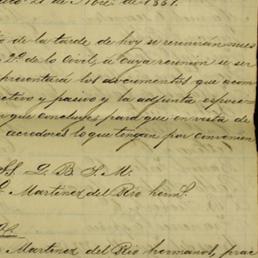 21 de Nbre. de 1861.
de la tarde de hoy se reunirán nues
2º. de lo Civil, á cuya reunion se ser
presentará los documentos que acom
activo y pasivo y la adjunta esposi
que concluye para que en vista de
acredores lo que tengan por convenien
S. S. Q. B. S. M.
Martinez del Rio herms.
Martinez del Rio hermanos, prac